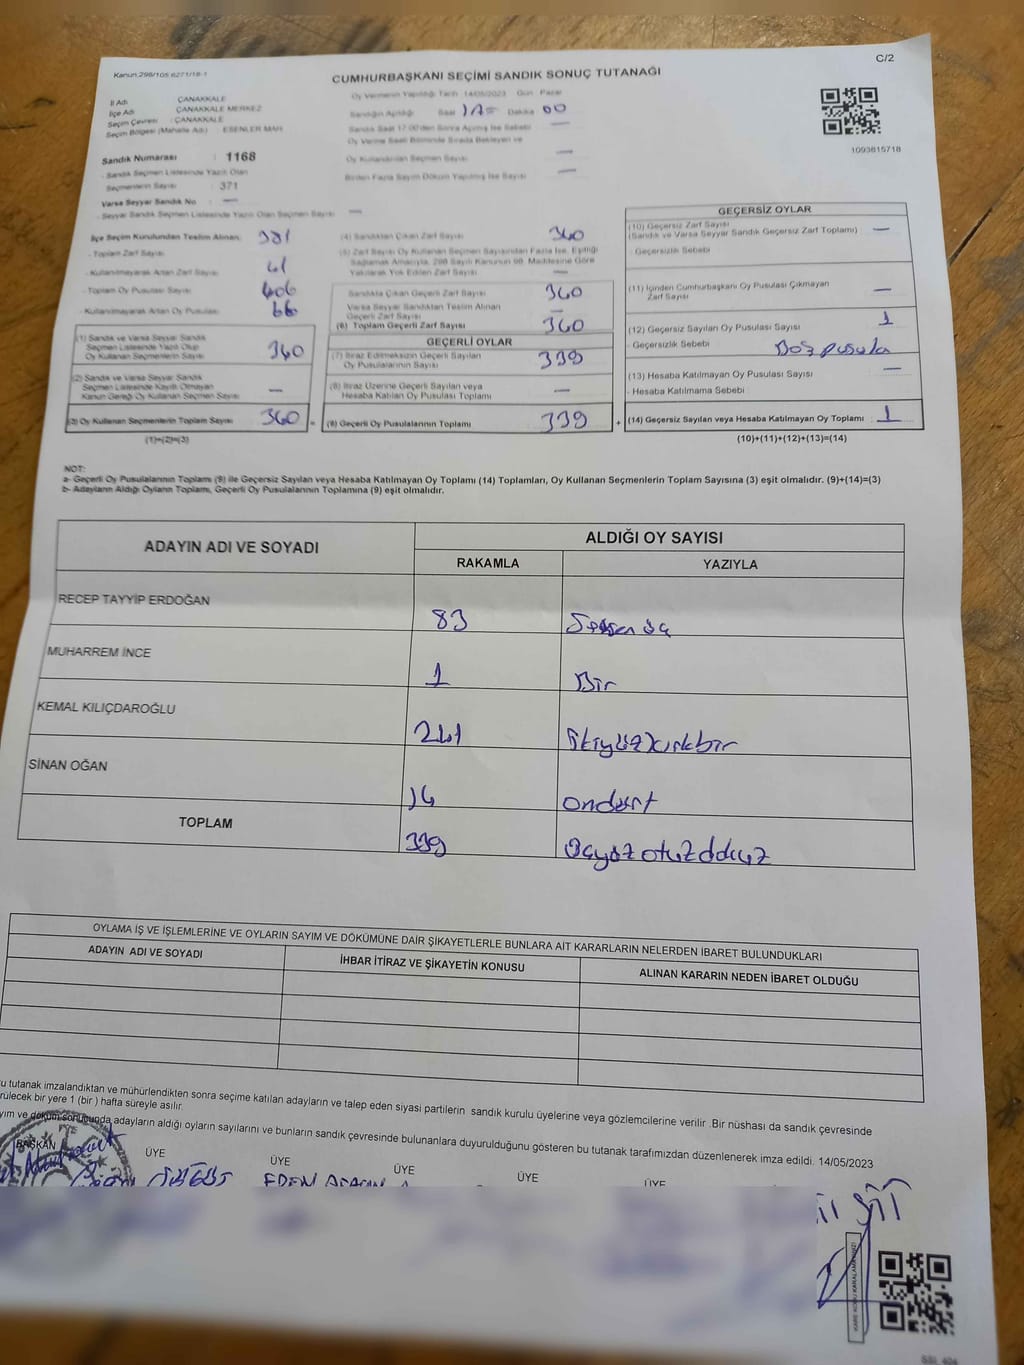 C/2
Kanun.298/105 6271/18-1
CUMHURBAŞKANI SEÇİMİ SANDIK SONUÇ TUTANAĞI
İl Adı ÇANAKKALE
İlçe Adı ÇANAKKALE MERKEZ
Seçim Çevresi : ÇANAKKALE
Seçim Bölgesi (Mahalle Adı) : ESENLER MAH
Sandık Numarası : 1168
- Sandık Seçmen Listesinde Yazılı Olan
Seçmenlerin Sayısı : 371
Varsa Seyyar Sandık No : —
- Seyyar Sandık Seçmen Listesinde Yazılı Olan Seçmen Sayısı —
Oy Vermenin Yapıldığı Tarih 14/05/2023 Gün Pazar
Sandığın Açıldığı Saat 17 Dakika 00
Sandık Saat 17:00'den Sonra Açılmış İse Sebebi —
Oy Verme Saati Bitiminde Sırada Bekleyen ve
Oy Kullandırılan Seçmen Sayısı —
Birden Fazla Sayım Döküm Yapılmış İse Sayısı —
1093815718
İlçe Seçim Kurulundan Teslim Alınan: 381
- Toplam Zarf Sayısı
- Kullanılmayarak Artan Zarf Sayısı 41
- Toplam Oy Pusulası Sayısı 406
- Kullanılmayarak Artan Oy Pusulası 66
(1) Sandık ve Varsa Seyyar Sandık
Seçmen Listesinde Yazılı Olup
Oy Kullanan Seçmenlerin Sayısı 340
(2) Sandık ve Varsa Seyyar Sandık
Seçmen Listesinde Kayıtlı Olmayan
Kanun Gereği Oy Kullanan Seçmen Sayısı —
(3) Oy Kullanan Seçmenlerin Toplam Sayısı 340
(1)+(2)=(3)
(4) Sandıktan Çıkan Zarf Sayısı 340
(5) Zarf Sayısı Oy Kullanan Seçmen Sayısından Fazla İse, Eşitliği
Sağlamak Amacıyla, 298 Sayılı Kanunun 98. Maddesine Göre
Yakılarak Yok Edilen Zarf Sayısı —
Sandıkta Çıkan Geçerli Zarf Sayısı 340
Varsa Seyyar Sandıktan Teslim Alınan
Geçerli Zarf Sayısı —
(6) Toplam Geçerli Zarf Sayısı 340
GEÇERLİ OYLAR
(7) İtiraz Edilmeksizin Geçerli Sayılan
Oy Pusulasının Sayısı 339
(8) İtiraz Üzerine Geçerli Sayılan veya
Hesaba Katılan Oy Pusulası Toplamı —
= (9) Geçerli Oy Pusulalarının Toplamı 339
GEÇERSİZ OYLAR
(10) Geçersiz Zarf Sayısı
(Sandık ve Varsa Seyyar Sandık Geçersiz Zarf Toplamı) —
- Geçersizlik Sebebi
(11) İçinden Cumhurbaşkanı Oy Pusulası Çıkmayan
Zarf Sayısı —
(12) Geçersiz Sayılan Oy Pusulası Sayısı 1
- Geçersizlik Sebebi Boş pusula
(13) Hesaba Katılmayan Oy Pusulası Sayısı —
- Hesaba Katılmama Sebebi
+ (14) Geçersiz Sayılan veya Hesaba Katılmayan Oy Toplamı 1
(10)+(11)+(12)+(13)=(14)
NOT:
a- Geçerli Oy Pusulalarının Toplamı (9) ile Geçersiz Sayılan veya Hesaba Katılmayan Oy Toplamı (14) Toplamları, Oy Kullanan Seçmenlerin Toplam Sayısına (3) eşit olmalıdır. (9)+(14)=(3)
b- Adayların Aldığı Oyların Toplamı, Geçerli Oy Pusulalarının Toplamına (9) eşit olmalıdır.
ADAYIN ADI VE SOYADI ALDIĞI OY SAYISI
RAKAMLA YAZIYLA
RECEP TAYYİP ERDOĞAN 83 Seksen üç
MUHARREM İNCE 1 Bir
KEMAL KILIÇDAROĞLU 241 ikiyüzkırkbir
SİNAN OĞAN 14 ondört
TOPLAM 339 Üçyüz otuz dokuz
OYLAMA İŞ VE İŞLEMLERİNE VE OYLARIN SAYIM VE DÖKÜMÜNE DAİR ŞİKAYETLERLE BUNLARA AİT KARARLARIN NELERDEN İBARET BULUNDUKLARI
ADAYIN ADI VE SOYADI İHBAR İTİRAZ VE ŞİKAYETİN KONUSU ALINAN KARARIN NEDEN İBARET OLDUĞU
u tutanak imzalandıktan ve mühürlendikten sonra seçime katılan adayların ve talep eden siyasi partilerin sandık kurulu üyelerine veya gözlemcilerine verilir .Bir nüshası da sandık çevresinde
rülecek bir yere 1 (bir ) hafta süreyle asılır.
yım ve döküm sonucunda adayların aldığı oyların sayılarını ve bunların sandık çevresinde bulunanlara duyurulduğunu gösteren bu tutanak tarafımızdan düzenlenerek imza edildi. 14/05/2023
BAŞKAN ÜYE ÜYE ÜYE ÜYE ÜYE